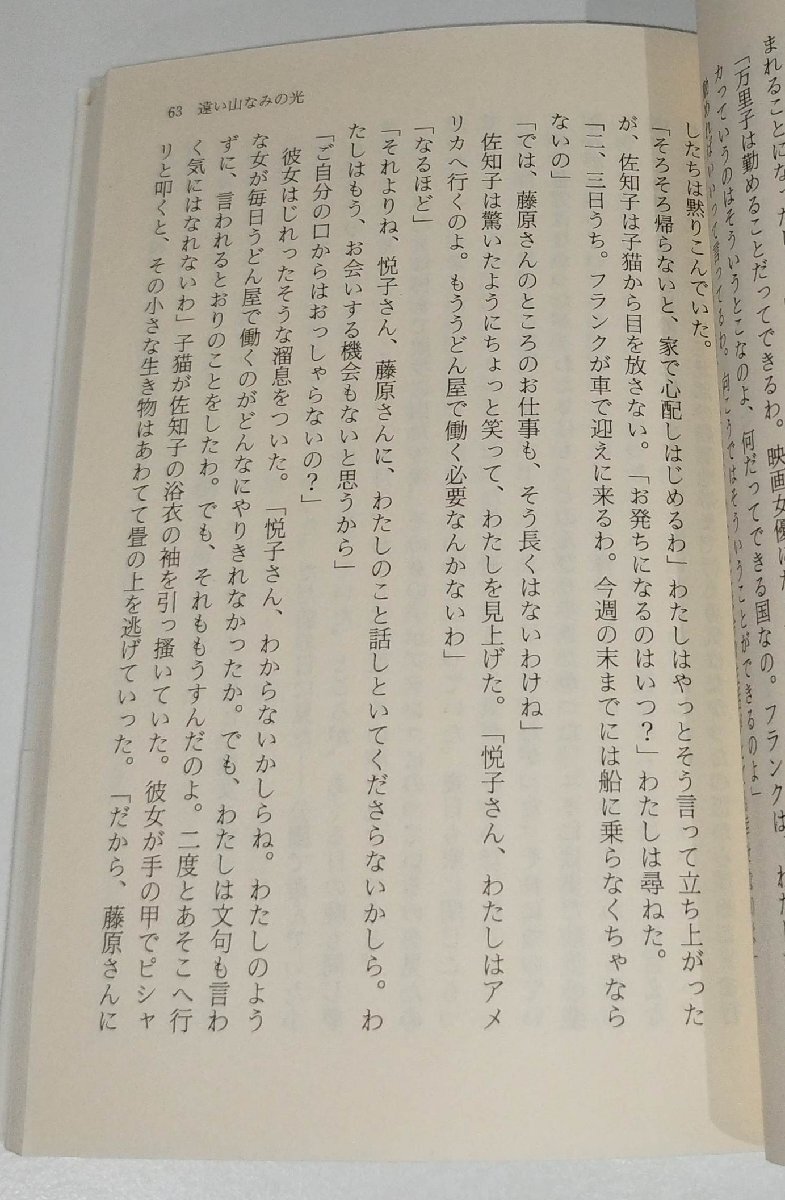 まれることになった
「万里子は勤めることだってできるわ。映画女優
カっていうのはそういうとこなのよ、何だってできる国なの。フランクは、わたし
こうではそういうことができるのよ」
63 遠い山なみの光
したちは黙りこんでいた。
「そろそろ帰らないと、家で心配しはじめるわ」わたしはやっとそう言って立ち上がった
が、佐知子は子猫から目を放さない。「お発ちになるのはいつ？」わたしは尋ねた。
「二、三日うち。フランクが車で迎えに来るわ。今週の末までには船に乗らなくちゃなら
ないの」
「では、藤原さんのところのお仕事も、そう長くはないわけね」
佐知子は驚いたようにちょっと笑って、わたしを見上げた。「悦子さん、わたしはアメ
リカへ行くのよ。もううどん屋で働く必要なんかないわ」
「なるほど」
「それよりね、悦子さん、藤原さんに、わたしのこと話しといてくださらないかしら。わ
たしはもう、お会いする機会もないと思うから」
「ご自分の口からはおっしゃらないの？」
彼女はじれったそうな溜息をついた。「悦子さん、わからないかしらね。わたしのよう
な女が毎日うどん屋で働くのがどんなにやりきれなかったか。でも、わたしは文句も言わ
ずに、言われるとおりのことをしたわ。でも、それももうすんだのよ。二度とあそこへ行
く気にはなれないわ」子猫が佐知子の浴衣の袖を引っ掻いていた。彼女が手の甲でピシャ
リと叩くと、その小さな生き物はあわてて畳の上を逃げていった。「だから、藤原さんに